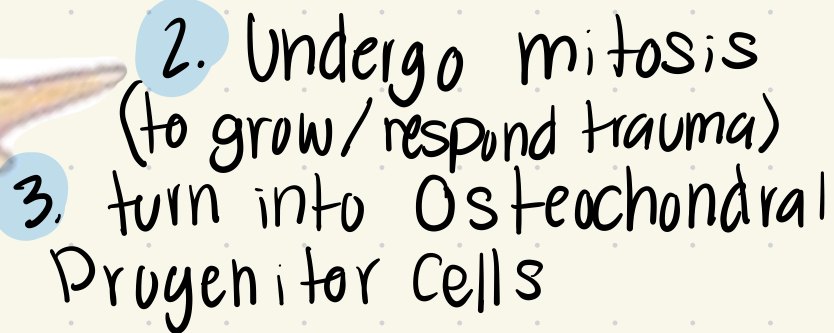 2. Undergo mitosis
(to grow/respond trauma)
3. turn into Osteochondral
Progenitor Cells